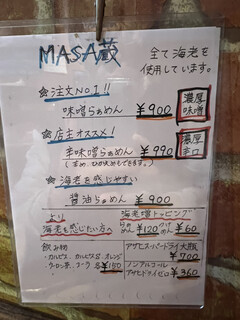 MASA蔵
全て海老を
使用しています。
☆注文No.1!!
味噌らぁめん ¥900
濃厚
味噌
☆店主オススメ!
辛味噌らぁめん ¥990
濃厚
辛口
☆海老を感じやすい
醤油らぁめん ¥900
より
海老を感じたい方へ
海老増トッピング
らぁめん ¥120 つけめん ¥60
飲み物
・カルピス、カルピスS、オレンジ
・ウーロン茶、コーラ 各¥150
アサヒスーパードライ 大瓶
¥700
ノンアルコール
アサヒドライゼロ ¥360